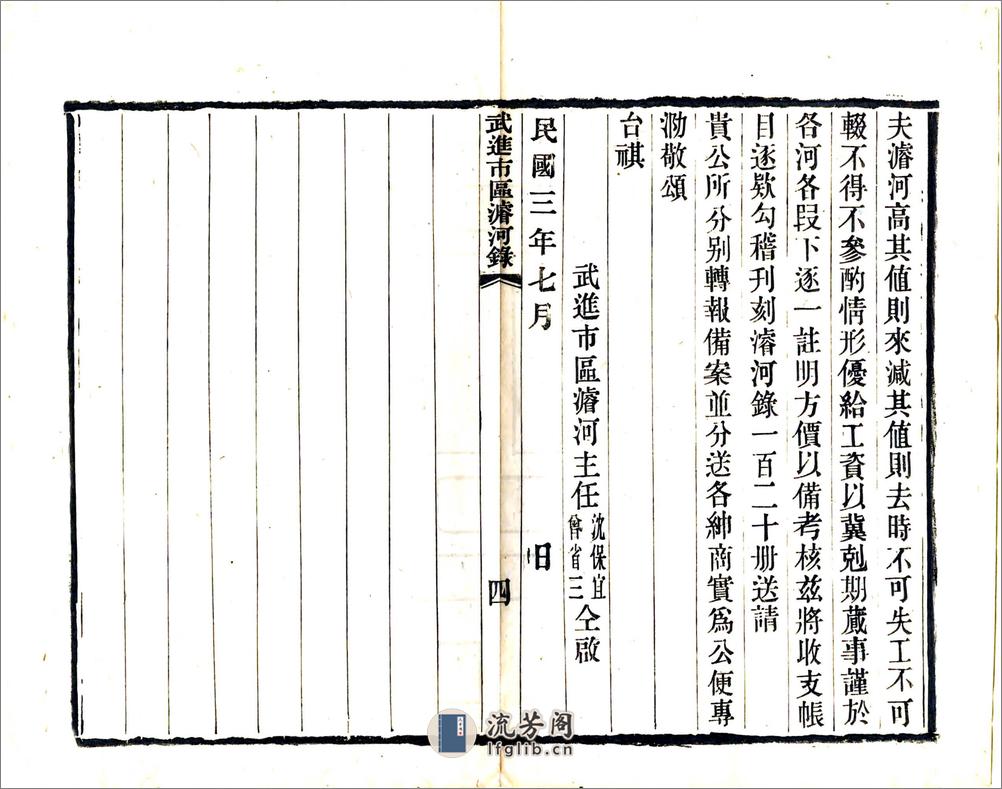 夫濬河高其值則來減其值則去時不可失工不可
輟不得不參酌情形優給工資以冀剋期蕆事謹於
各河各段下逐一註明方價以備考核茲將收支帳
目逐欵勾稽刊刻濬河錄一百二十册送請
貴公所分别轉報備案並分送各紳商實爲公便專
泐敬頌
台祺
武進市區濬河主任沈保宜曾省三仝啟
民國三年七月 日
武進市區濬河錄 四
流芳阁
lfglib.cn